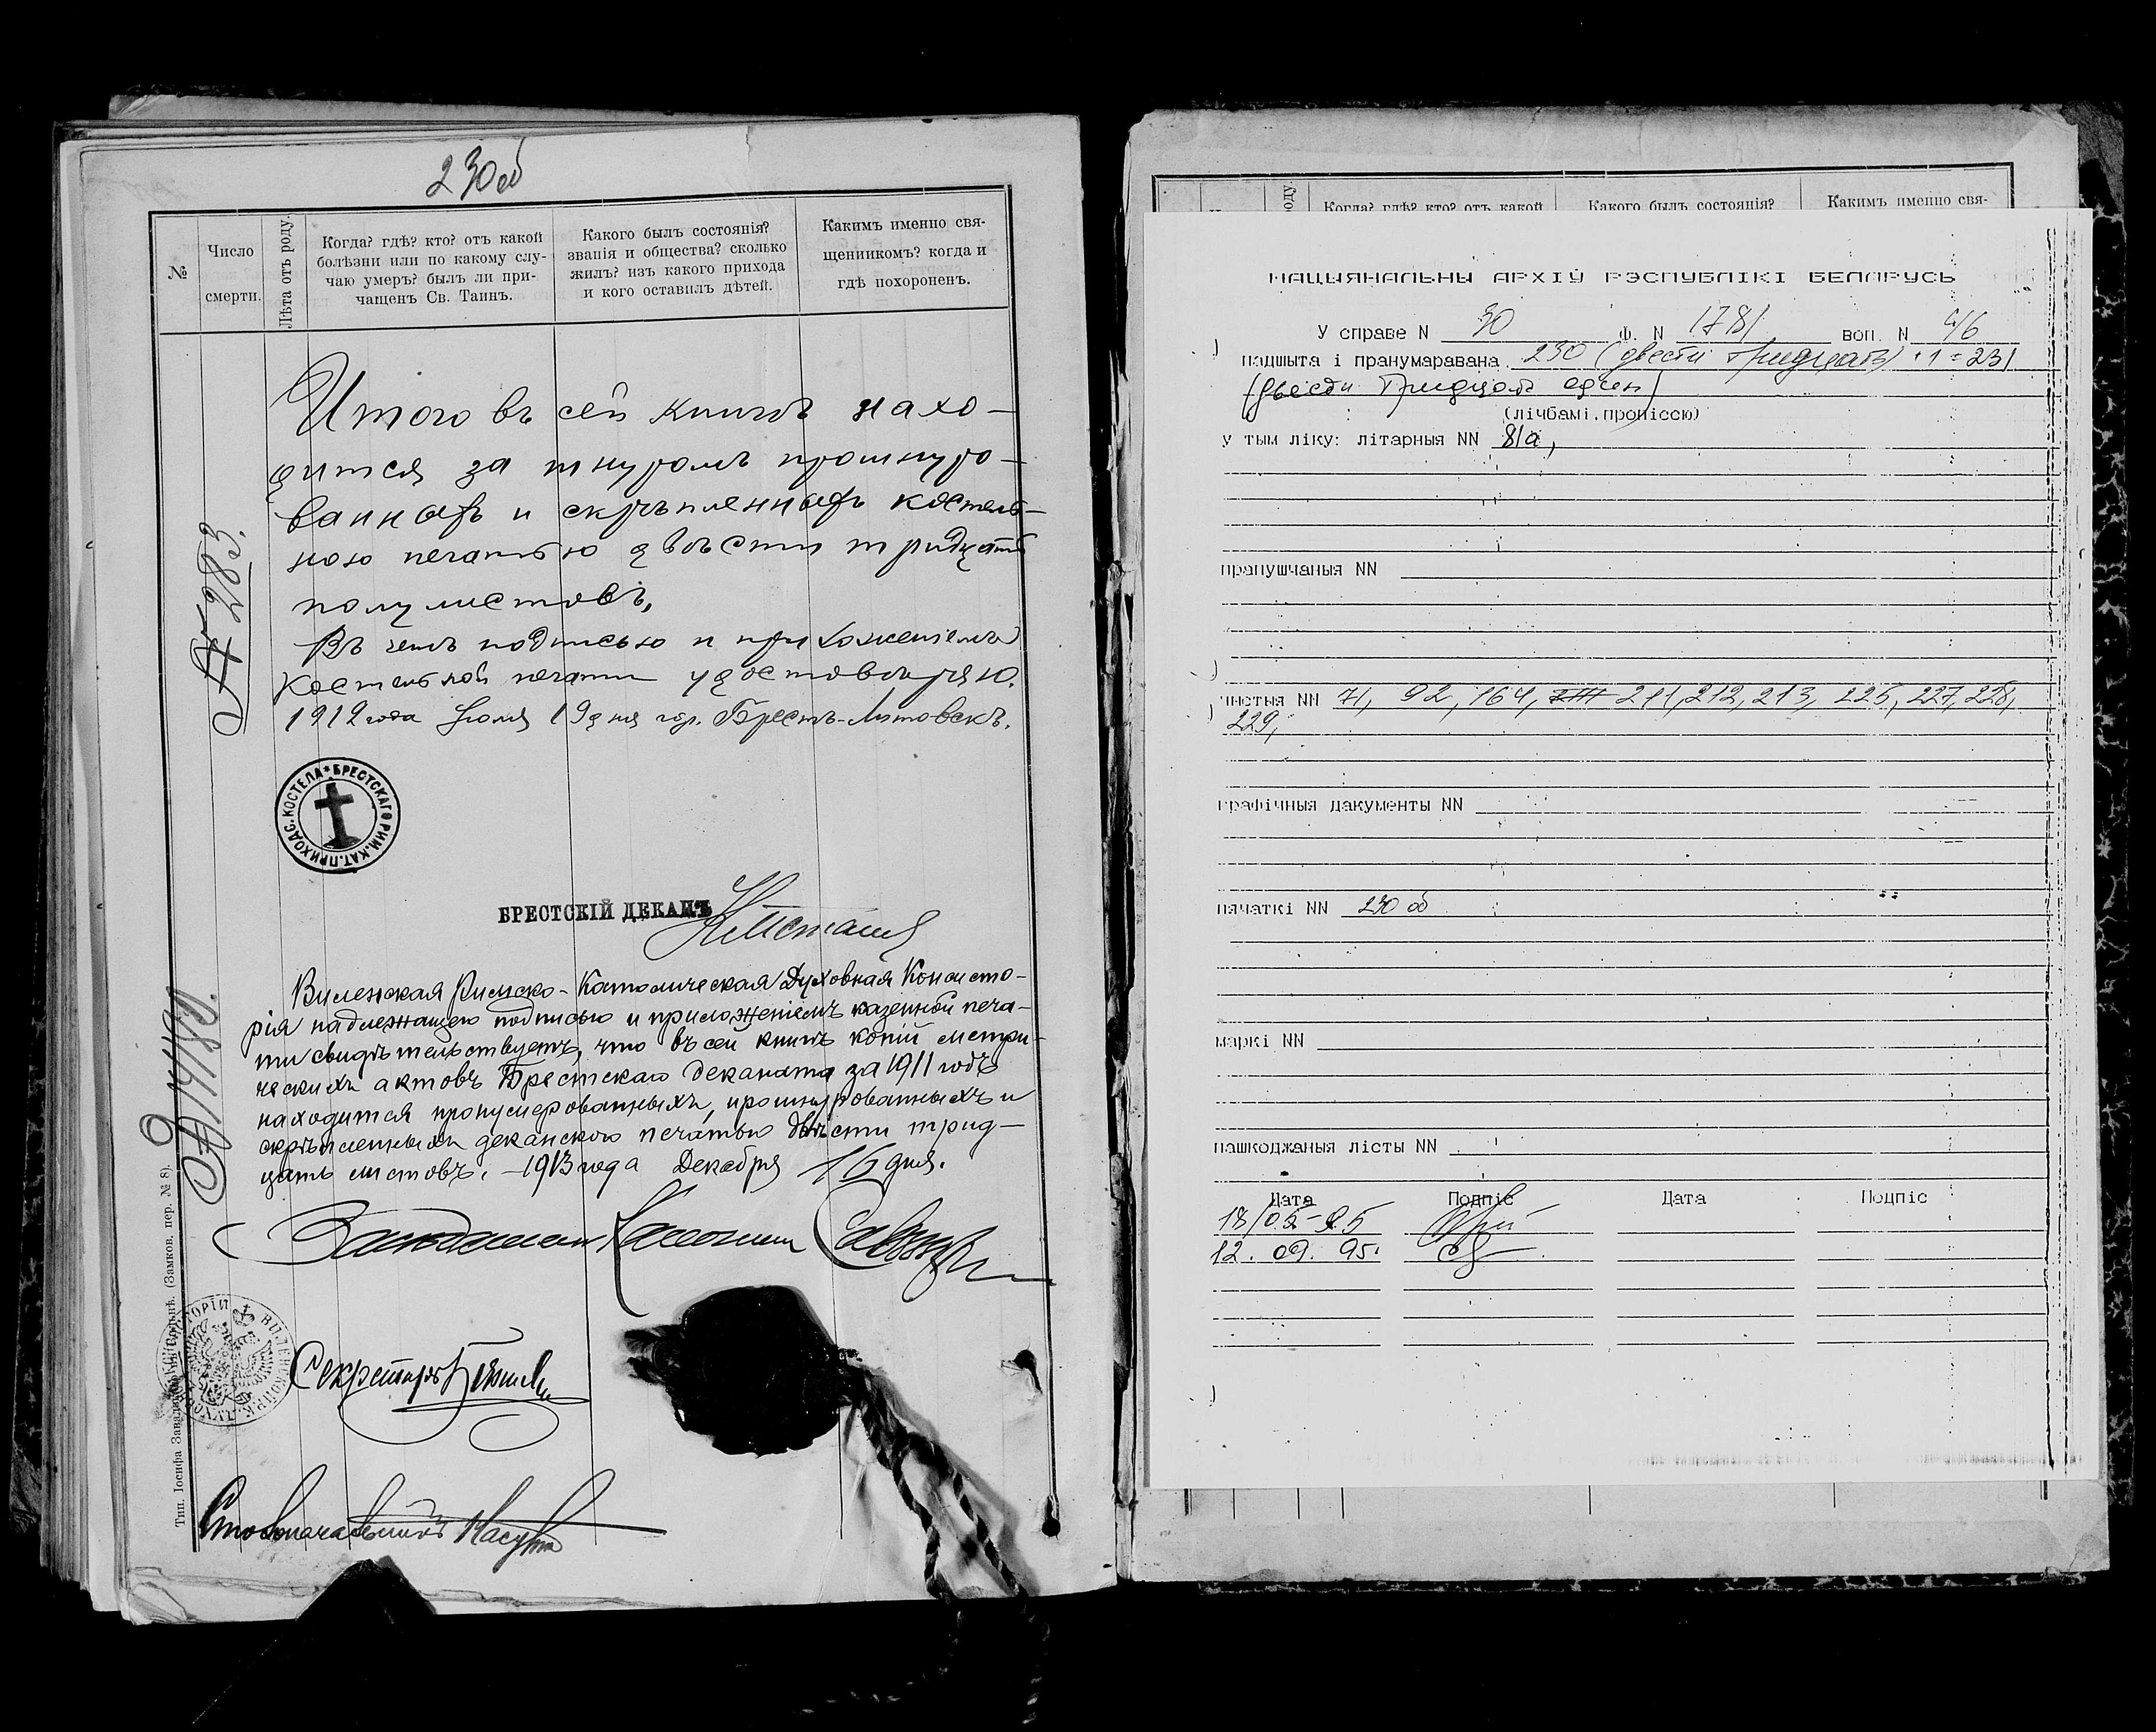 230 об
№
Число
смерти.
Лѣта отъ роду.
Когда? гдѣ? кто? отъ какой
болѣзни или по какому слу-
чаю умеръ? былъ ли при-
чащенъ Св. Таинъ.
Какого былъ состоянія?
званія и общества? сколько
жилъ? изъ какого прихода
и кого оставилъ дѣтей.
Каким именно свя-
щенникомъ? когда и
гдѣ похороненъ.
Итого въ сей книгѣ нахо-
дится за шнуромъ прошнуро-
ванныхъ и скрѣпленныхъ костель-
ною печатью двѣсти тридцать
полулистовъ,
Въ чемъ подписью и приложеніемъ
костельной печати удостовѣряю.
1912 года Іюля 19 дня гор. Брестъ-Литовскъ.
№ 283.
БРЕСТСКАГО РИМ. КАТ. ПРИХОДС. КОСТЕЛА
БРЕСТСКІЙ ДЕКАНЪ
Виленская Римско-Католическая Духовная Консисто-
рія надлежащею подписью и приложеніемъ казенной печа-
ти свидѣтельствуетъ, что въ сей книгѣ копій метри-
ческихъ актовъ Брестскаго деканата за 1911 годъ
находится пронумерованныхъ, прошнурованныхъ и
скрѣпленныхъ деканскою печатью двѣсти трид-
цать листовъ. - 1913 года Декабря 16 дня.
Секретарь
Столоначальникъ
Тип. Іосифа Завадзкаго (Замков. пер. № 8).
Когда? гдѣ? кто? отъ какой
Какого былъ состоянія?
Какимъ именно свя-
НАЦЫЯНАЛЬНЫ АРХІЎ РЭСПУБЛІКІ БЕЛАРУСЬ
У справе N 30 Ф. N 1781 воп. N
падшыта і пранумаравана 230 (двести тридцать) + 1 = 231
(двести тридцать один)
(лічбамі, пропіссю)
у тым ліку: літарныя NN 81а,
прапушчаныя NN
чыстыя NN 71, 92, 164, 211, 212, 213, 225, 227, 228,
229,
графічныя дакументы NN
пячаткі NN 230 об
маркі NN
пашкоджаныя лісты NN
Дата Подпіс Дата Подпіс
18/05-95
12. 09. 95.